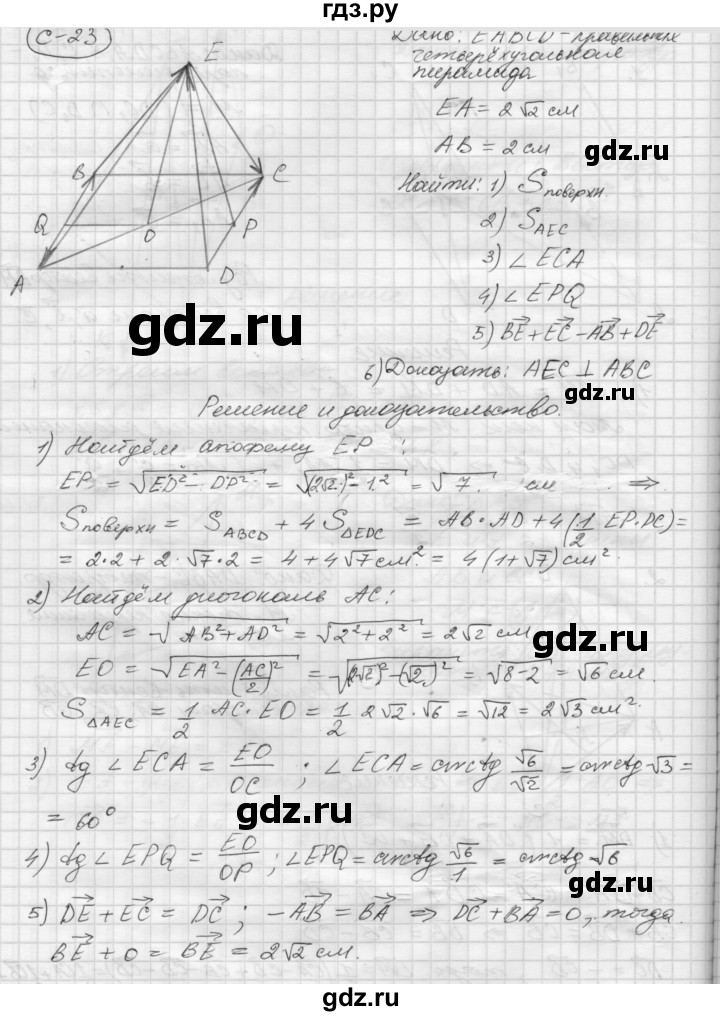 гдз.ру
С-23
Дано: EABCD - правильная
четырёхугольная
пирамида
EA = 2√2 см
AB = 2 см
Найти: 1) Sповерхн.
2) S AEC
3) ∠ ECA
4) ∠ EPQ
5) BE + EC - AB + DE
6) Доказать: AEC ⊥ ABC
E
B
C
Q
O
P
A
D
Решение и доказательство.
1) Найдём апофему EP:
EP = √ED² - DP² = √(2√2)² - 1² = √7 см ⇒
Sповерхн = S ABCD + 4 S ΔEDC = AB·AD + 4(1/2 EP·DC) =
= 2·2 + 2·√7·2 = 4 + 4√7 см² = 4(1+√7) см².
2) Найдём диагональ AC:
AC = √AB² + AD² = √2² + 2² = 2√2 см
EO = √EA² - (AC/2)² = √(2√2)² - (√2)² = √8-2 = √6 см.
S ΔAEC = 1/2 AC·EO = 1/2 2√2·√6 = √12 = 2√3 см².
3) tg ∠ ECA = EO/OC ; ∠ ECA = arctg √6/√2 = arctg √3 =
= 60°
4) tg ∠ EPQ = EO/OP ; ∠EPQ = arctg √6/1 = arctg √6
5) DE + EC = DC ; -AB = BA ⇒ DC + BA = 0, тогда
BE + 0 = BE = 2√2 см.
gdz.ru
gdz.ru
gdz.ru
gdz.ru
gdz.ru
gdz.ru
gdz.ru